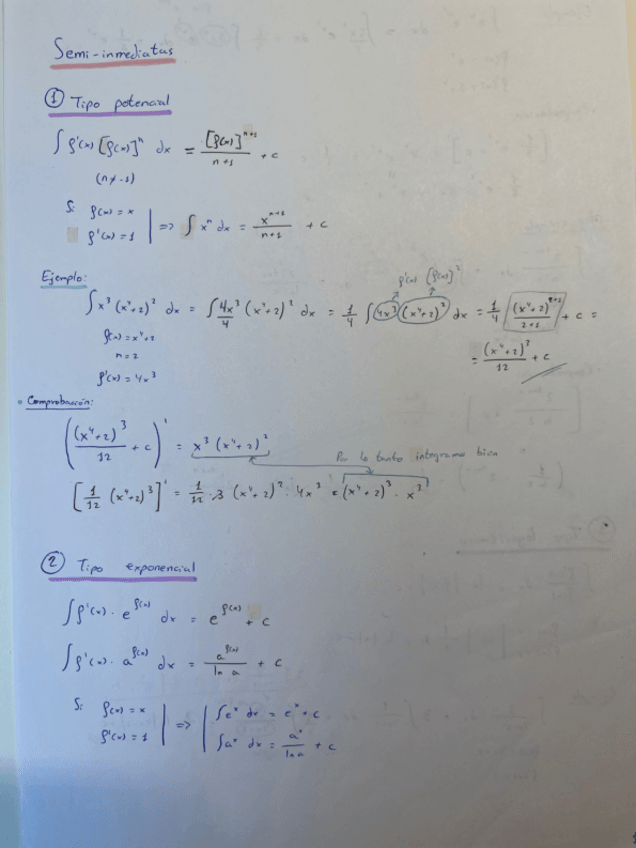 Semi-inmediatas
① Tipo potencial
∫ f'(x) [f(x)]ⁿ dx = [f(x)]ⁿ⁺¹ / n+1 + c
(n ≠ -1)
Si f(x) = x
f'(x) = 1 | => ∫ xⁿ dx = xⁿ⁺¹ / n+1 + c
Ejemplo:
f'(x) [f(x)]²
∫ x³ (x⁴+2)² dx = ∫ 4x³/4 (x⁴+2)² dx = 1/4 ∫ 4x³ (x⁴+2)² dx = 1/4 (x⁴+2)²⁺¹ / 2+1 + c =
f(x) = x⁴+2
n = 2
= (x⁴+2)³ / 12 + c
f'(x) = 4x³
Comprobación:
((x⁴+2)³ / 12 + c)' = x³ (x⁴+2)²
Por lo tanto integramos bien
[1/12 (x⁴+2)³]' = 1/12 · 3 (x⁴+2)² · 4x³ = (x⁴+2)³ · x³
② Tipo exponencial
∫ f'(x) · e^f(x) dx = e^f(x) + c
∫ f'(x) · a^f(x) dx = a^f(x) / ln a + c
Si f(x) = x
f'(x) = 1 | => | ∫ eˣ dx = eˣ + c
∫ aˣ dx = aˣ / ln a + c